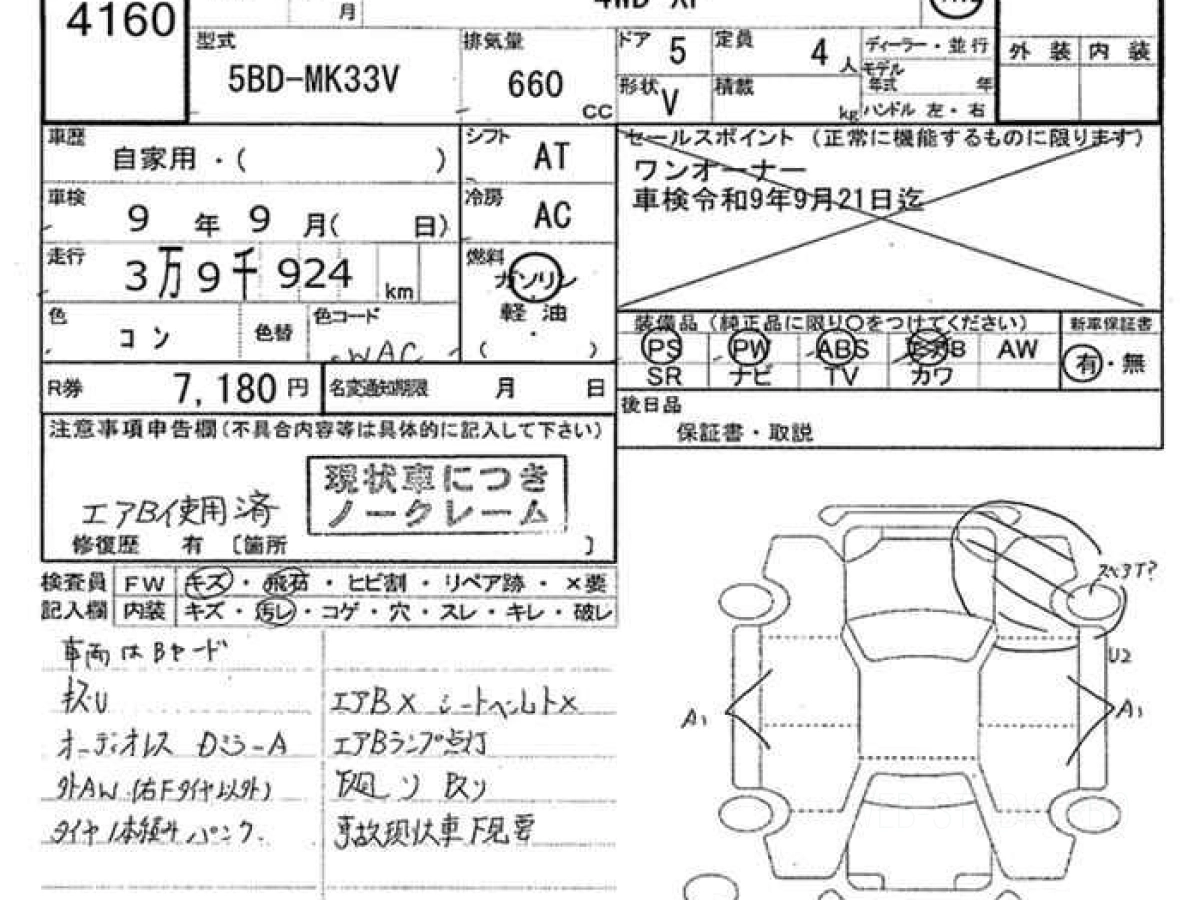 4160
月
型式
5BD-MK33V
排気量
660
CC
ドア 5
定員 4 人
ディーラー・並行
モデル
年式 年
形状 V
積載 kg
ハンドル 左・右
外装 内装
車歴
自家用・( )
シフト
AT
セールスポイント (正常に機能するものに限ります)
ワンオーナー
車検令和9年9月21日迄
車検
9 年 9 月( 日)
冷房
AC
走行
3万9千924 km
燃料
ガソリン
軽・油
・
( )
色
コン
色替
色コード
WAC
装備品 (純正品に限り○をつけてください)
新車保証書
PS PW ABS エアB AW
SR ナビ TV カワ
有・無
R券
7,180 円
名変通知期限 月 日
後日品
保証書・取説
注意事項申告欄(不具合内容等は具体的に記入して下さい)
現状車につき
ノークレーム
エアB使用済
修復歴 有 〔箇所 〕
検査員 FW キズ・飛石・ヒビ割・リペア跡・×要
記入欄 内装 キズ・汚レ・コゲ・穴・スレ・キレ・破レ
車両はBヤード
キズU
オーディオレス DミラーA
外AW(右Fタイヤ以外)
タイヤ1本組サパンク.
エアB× シートベルト×
エアBランプ点灯
凹 ソリ
事故現状車下見要
U2
A1
A1